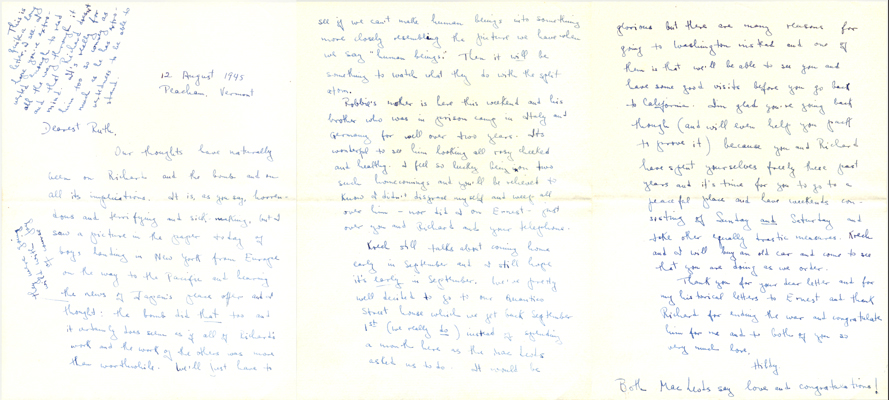 12 August 1945
Peacham, Vermont
Dearest Ruth,
Our thoughts have naturally
been on Richard and the bomb and on
all its implications. It is, as you say, horren-
dous and terrifying and sick-making, but I
saw a picture in the paper today of
boys landing in New York from Europe
on the way to the Pacific and hearing
the news of Japan's peace offer and I
thought: the bomb did that too and
it certainly does seem as if all of Richard's
work and the work of the others was more
than worthwhile. We'll just have to
see if we can't make human beings into something
more closely resembling the picture we have when
we say "human beings." Then it will be
something to watch what they do with the split
atom.
Robbie's mother is here this weekend and his
brother who was in prison camp in Italy and
Germany for well over two years. It's
wonderful to see him looking all rosy cheeked
and healthy. I feel so lucky being on two
such homecomings and you'll be relieved to
know I didn't disgrace myself and weep all
over him – nor did I on Ernest – just
over you and Richard and your telephone.
still talks about coming home
early in September and I still hope
it's early in September. We've pretty
well decided to go to our
Street house which we get back September
1st (we really do) instead of spending
a month here as the Mac Leods
asked us to do. It would be
glorious but there are many reasons for
going to Washington instead and one of
them is that we'll be able to see you and
have some good visits before you go back
to California. I'm glad you're going back
though (and will even help you pack
to prove it) because you and Richard
have spent yourselves freely these past
years and it's time for you to go to a
peaceful place and have weekends con-
sisting of Sunday and Saturday and
take other equally drastic measures.
and I will buy an old car and come to see
that you are doing as we order.
Thank you for your dear letter and for
my historical letters to Ernest and thank
Richard for ending the war and congratulate
him for me and to both of you so
very much love,
Hilby
Both Mac Leods say love and congratulations!